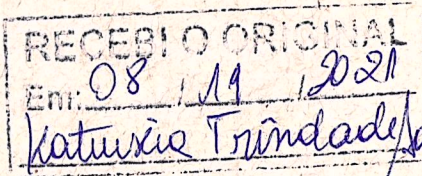 RECEBI O ORIGINAL
Em: 08 / 11 / 2021
Katuscia Trindade